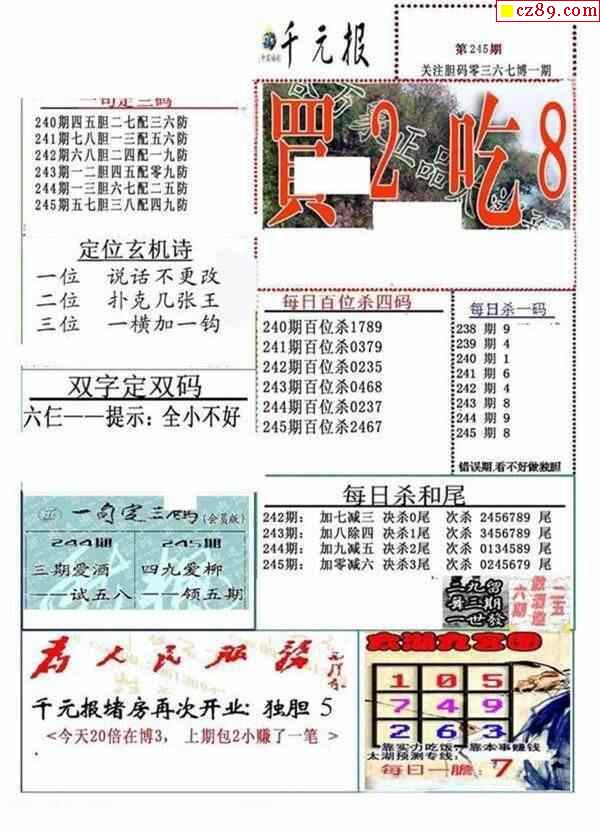 cz89.com
千元报
第245期
关注胆码零三六七博一期
一句定三码
240期四五胆二七配三六防
241期七八胆一三配五六防
242期六八胆二四配一九防
243期一二胆四五配零九防
244期一三胆六七配二五防
245期五七胆三八配四九防
買2吃8
定位玄机诗
一位 说话不更改
二位 扑克几张王
三位 一横加一钩
每日百位杀四码
240期百位杀1789
241期百位杀0379
242期百位杀0235
243期百位杀0468
244期百位杀0237
245期百位杀2467
每日杀一码
238 期 9
239 期 4
240 期 1
241 期 6
242 期 4
243 期 8
244 期 9
245 期 8
错误期,看不好做独胆
双字定双码
六仨——提示:全小不好
每日杀和尾
242期: 加七减三 决杀0尾 次杀 2456789 尾
243期: 加八除四 决杀1尾 次杀 3456789 尾
244期: 加九减五 决杀2尾 次杀 0134589 尾
245期: 加零减六 决杀3尾 次杀 0245679 尾
一句定三码(会员版)
244期 245期
三期爱酒 四九爱柳
——试五八 ——领五期
三九留
舞三期
一世發
二五
六期
為人民服務
千元报堵房再次开业: 独胆 5
<今天20倍在博3, 上期包2小赚了一笔>
太湖九宫图
1 0 5
7 4 9
2 6 3
靠实力吃饭,靠本事赚钱
太湖预测专线:
每日一胆: 7